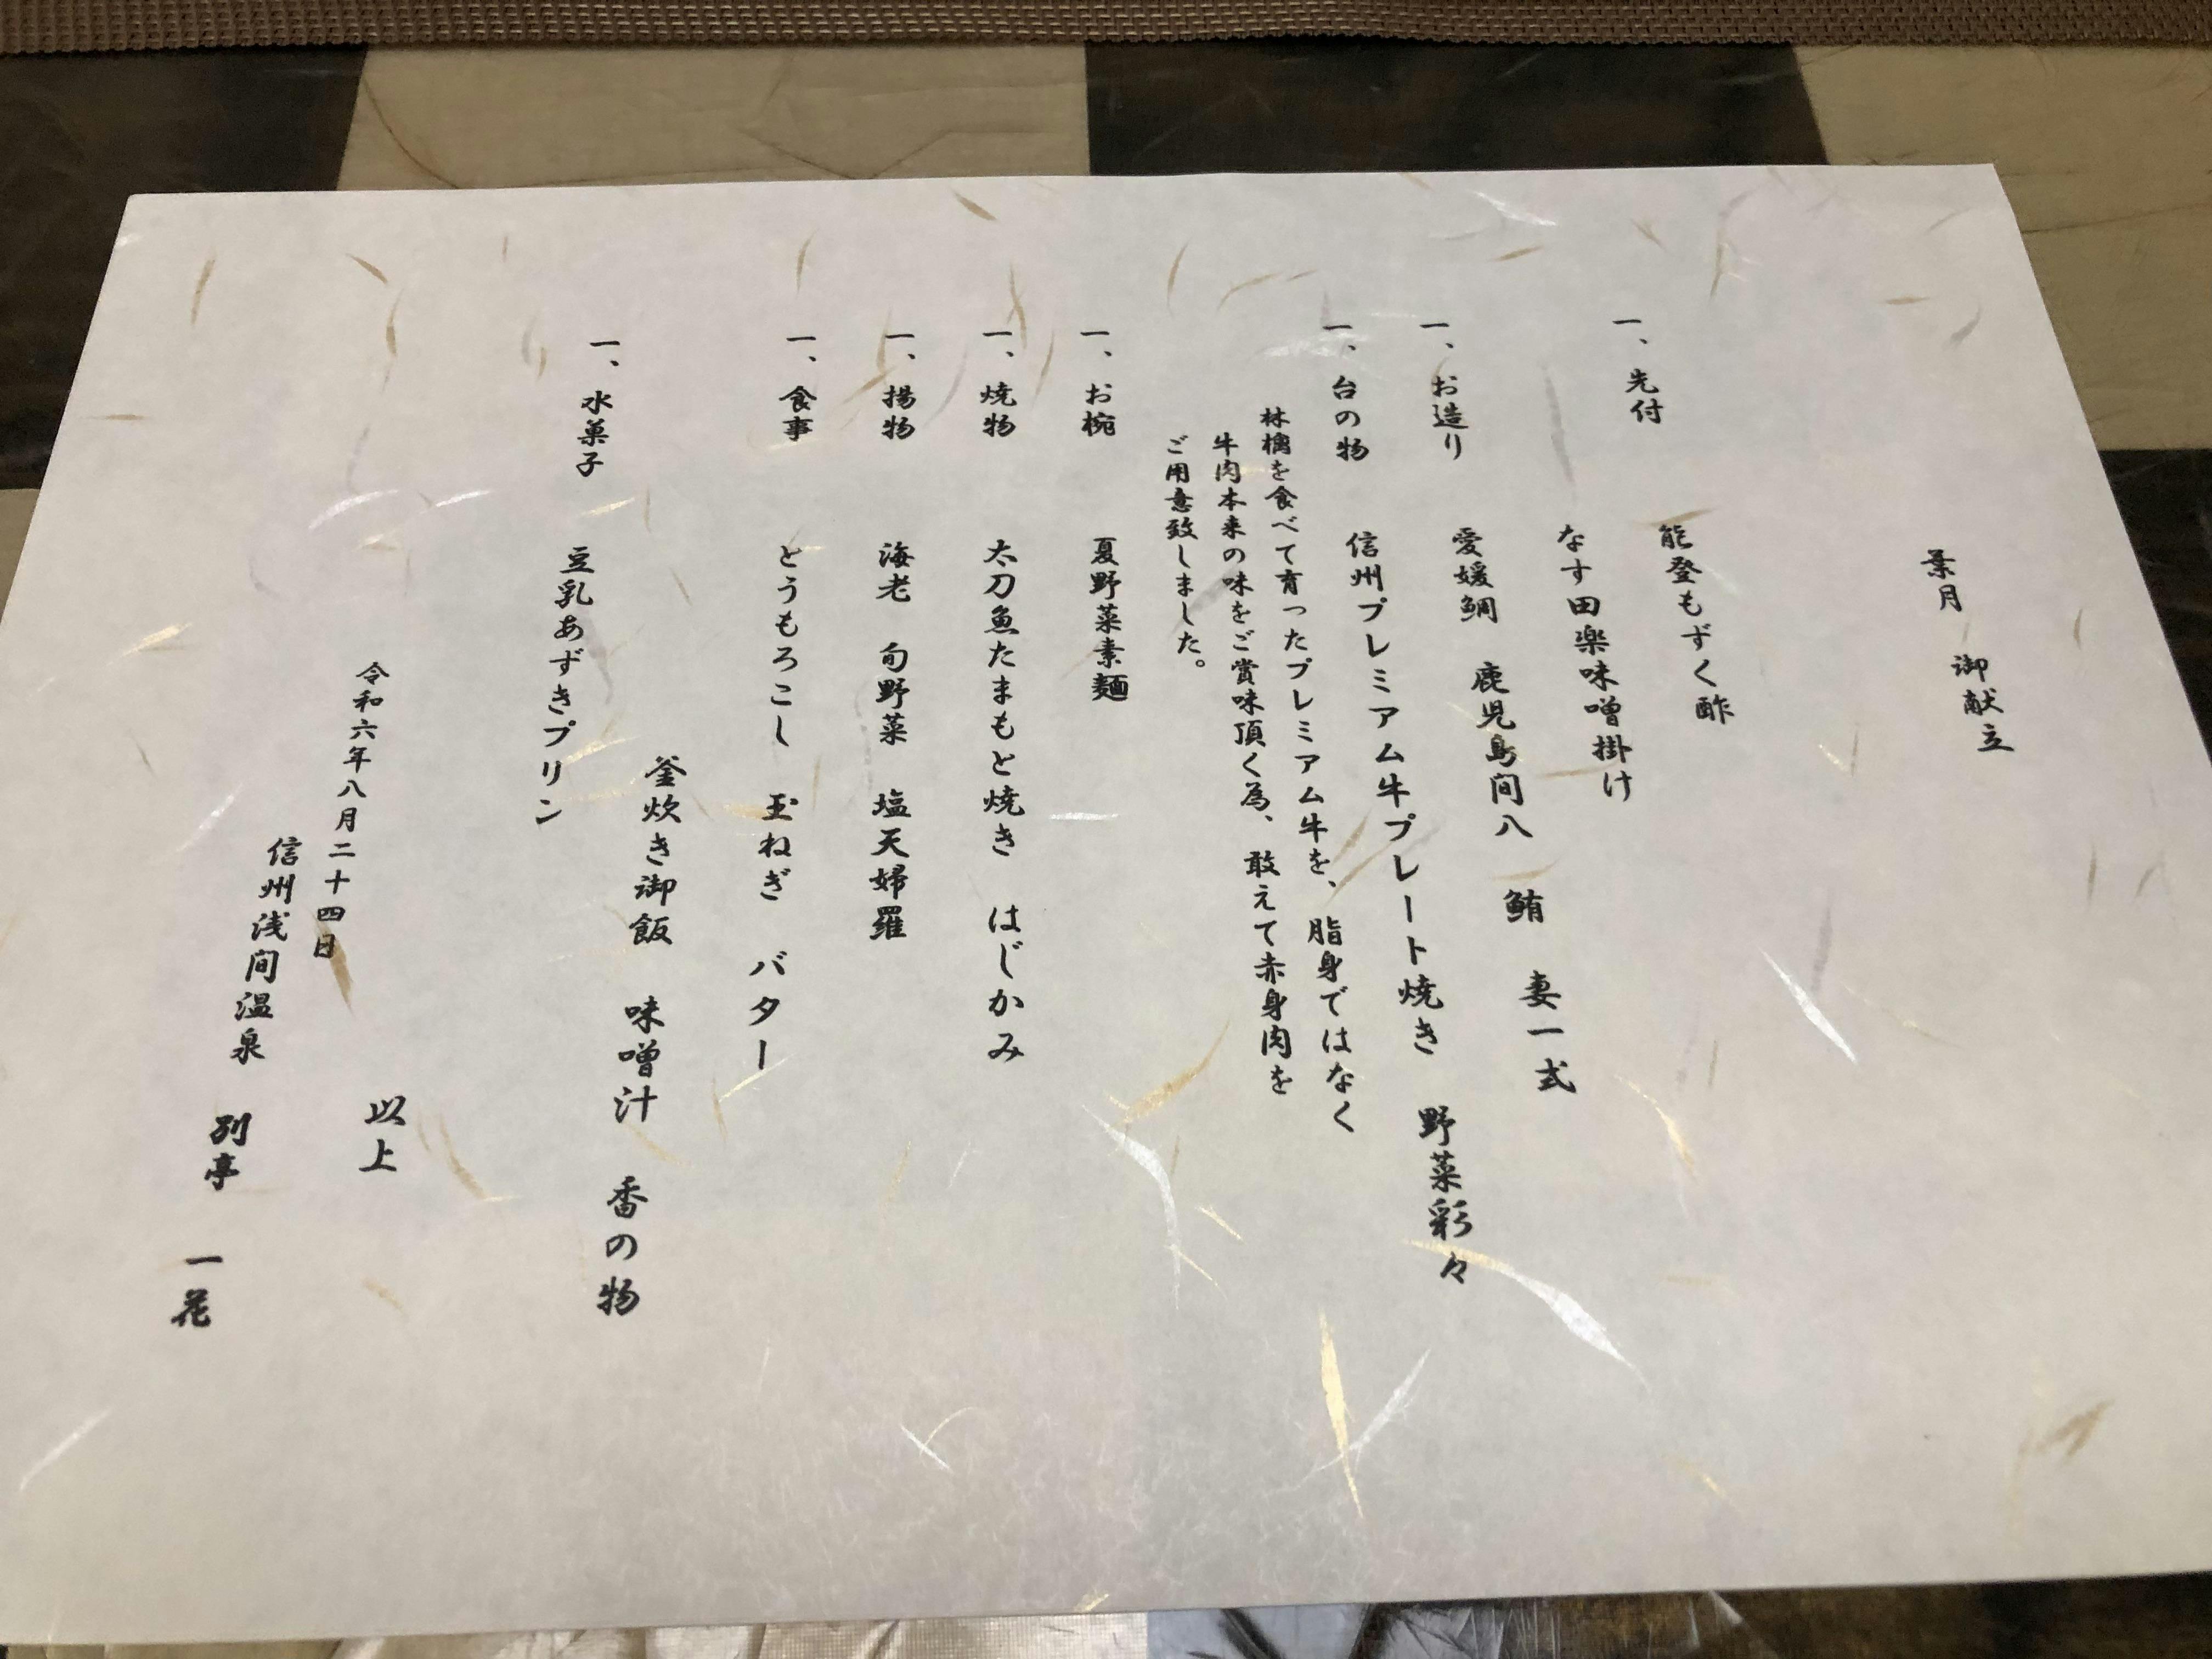 葉月　御献立
一、先付　能登もずく酢
なす田楽味噌掛け
一、お造り　愛媛鯛　鹿児島間八　鮪　妻一式
一、台の物　信州プレミアム牛プレート焼き　野菜彩々
林檎を食べて育ったプレミアム牛を、脂身ではなく
牛肉本来の味をご賞味頂く為、敢えて赤身肉を
ご用意致しました。
一、お椀　夏野菜素麺
一、焼物　太刀魚たまもと焼き　はじかみ
一、揚物　海老　旬野菜　塩天婦羅
一、食事　とうもろこし　玉ねぎ　バター
釜炊き御飯　味噌汁　香の物
一、水菓子　豆乳あずきプリン
以上
令和六年八月二十四日
信州浅間温泉　別亭　一花